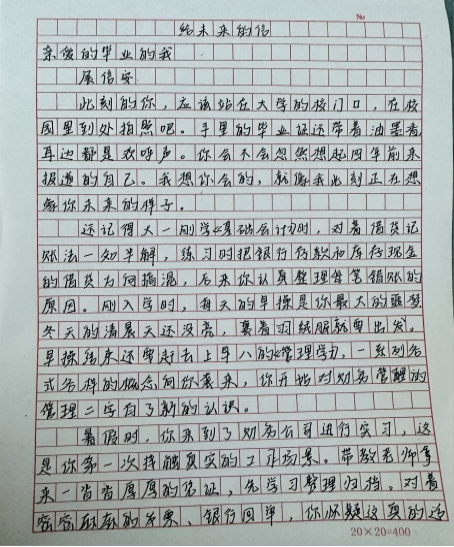 No
给未来的信
亲爱的毕业的我
展信安
此刻的你，应该站在大学的校门口，在校
园里到处拍照吧。手里的毕业证还带着油墨香
耳边都是欢呼声。你会不会忽然想起四年前来
报道的自己。我想你会的，就像我此刻正在想
象你未来的样子。
还记得大一刚学《基础会计》时，对着借贷记
账法一知半解，练习时把银行存款和库存现金
的借贷方向搞混，后来你认真整理每笔错账的
原因。刚入学时，每天的早操是你最大的噩梦
冬天的清晨天还没亮，裹着羽绒服就要出发。
早操结束还要赶去上早八的《管理学》，一系列各
式各样的概念向你袭来，你开始对财务管理的
管理二字有了新的认识。
暑假时，你来到了财务公司进行实习，这
是你第一次接触真实的工作场景。带教老师拿
来一沓沓厚厚的凭证，先学习整理归档。对着
密密麻麻的发票、银行回单，你怀疑这真的
20×20=400